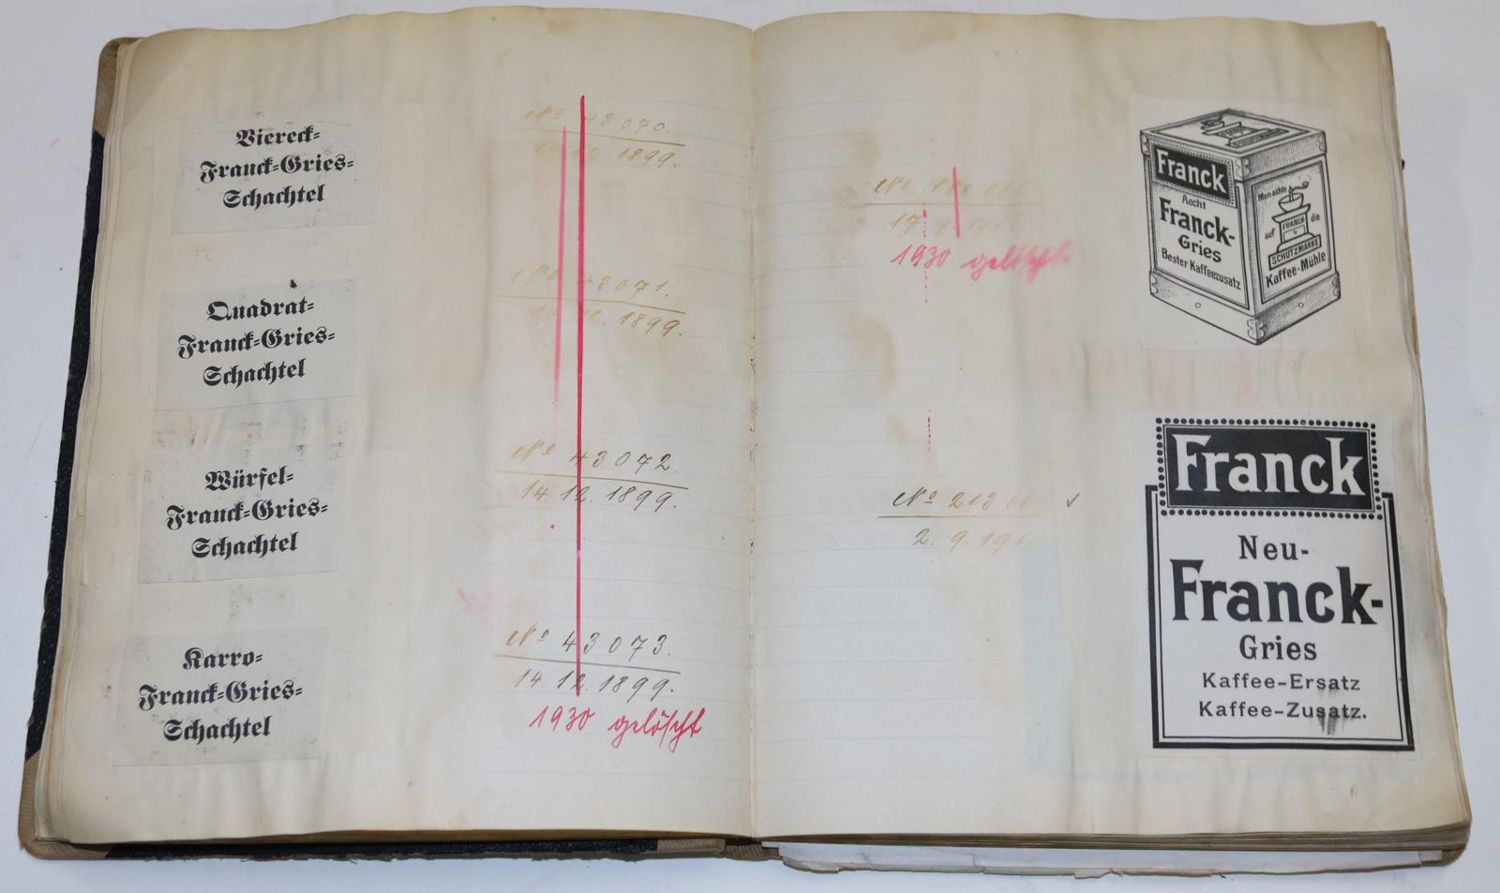 Viereck-
Franck-Gries-
Schachtel
Quadrat-
Franck-Gries-
Schachtel
Würfel-
Franck-Gries-
Schachtel
Karro-
Franck-Gries-
Schachtel
No 43070.
14.12.1899.
No 43071.
14.12.1899.
No 43072.
14.12.1899.
No 43073.
14.12.1899.
1930 gelöscht
No
17. 9.
1930 gelöscht
No 213
2. 9.
Franck
Aecht
Franck-
Gries
Bester Kaffeezusatz
Man achte
auf
FRANCK
die
SCHUTZMARKE
Kaffee-Mühle
Franck
Neu-
Franck-
Gries
Kaffee-Ersatz
Kaffee-Zusatz.